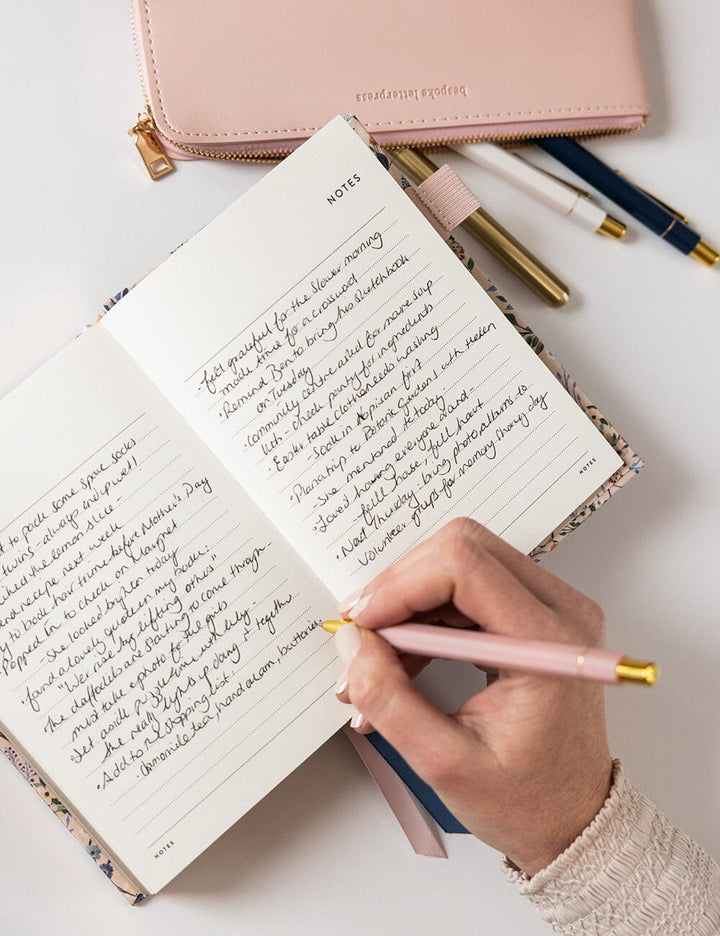 bespoke letterpress
to pack some spare socks
twins - always end up wet!
the lemon slice -
recipe next week
to book hair trims before Mother's Day
Popped in to check on Margaret
- She looked brighter today
• found a lovely quote on my book:
"We rise by lifting others"
• The daffodils are starting to come through
must take a photo for the girls
• Set aside puzzle time with Lily -
she really lights up doing it together
• Add to the shopping list:
chamomile tea, hand cream, batteries
NOTES
NOTES
• felt grateful for the slower morning
made time for a crossword
• Remind Ben to bring his sketchbook
on Tuesday
• Community centre asked for more soup
- check pantry for ingredients
• Easter table cloth needs washing
- Soak in Napisan first
• Plan a trip to Botanic Gardens with Helen
- She mentioned it today
• Loved having everyone around -
- full house, full heart
• Next Thursday: bring photo albums to
volunteer group for memory sharing day
NOTES